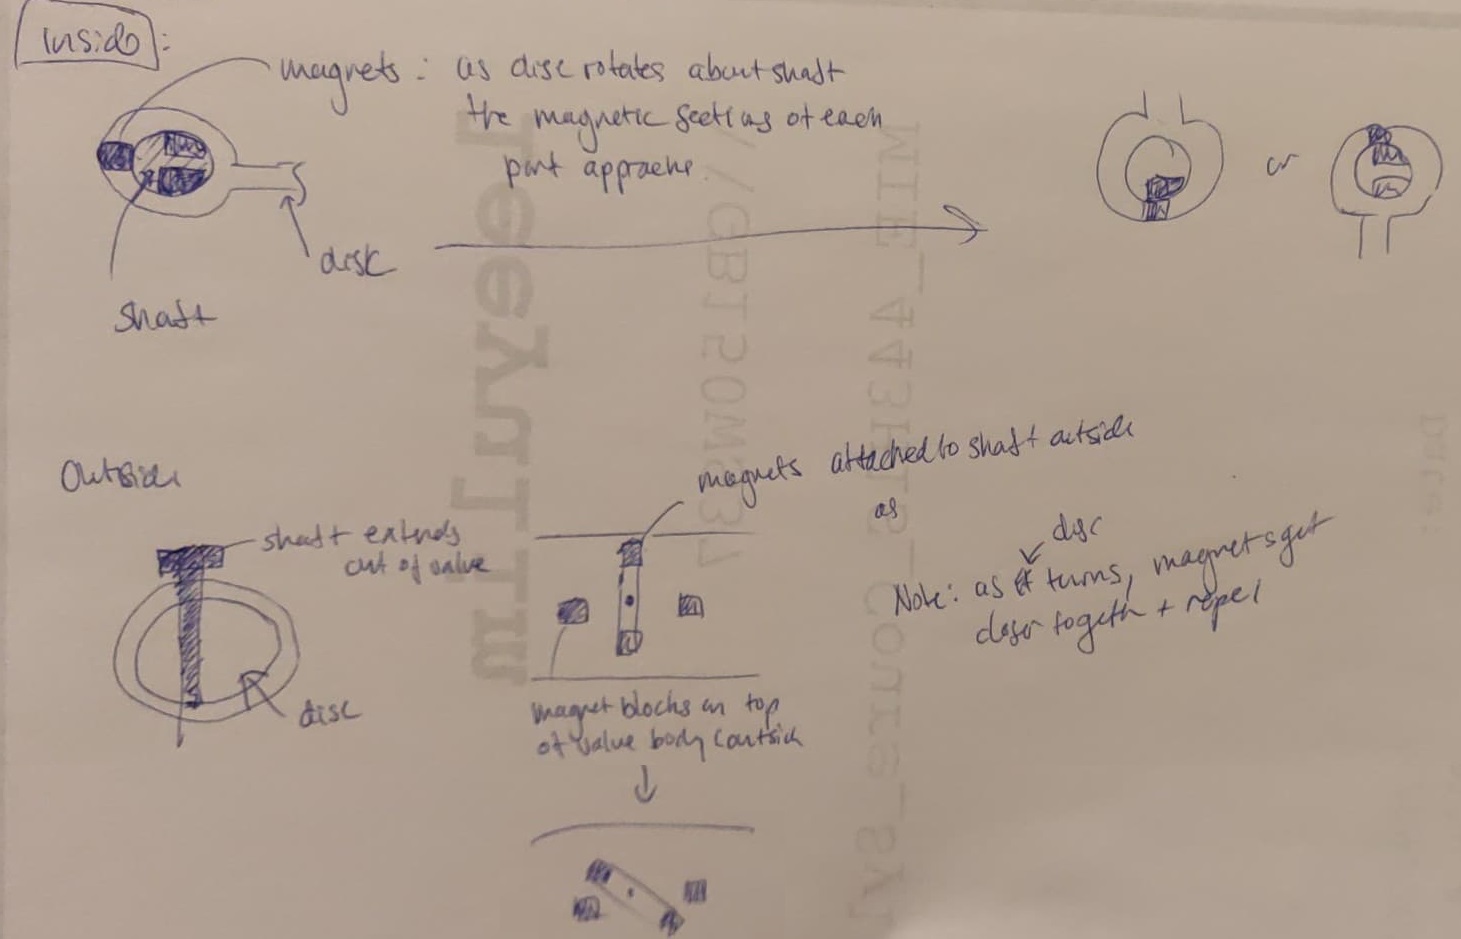 Inside:
magnets: as disc rotates about shaft
the magnetic sections of each
part approach.
or
disk
shaft
Outside
magnets attached to shaft outside
as
shaft extends
out of valve
disc
Note: as turns, magnets get
closer together + repel
disc
magnet blocks on top
of valve body (outside
MIE_443H1S_Course_Syl
Date: